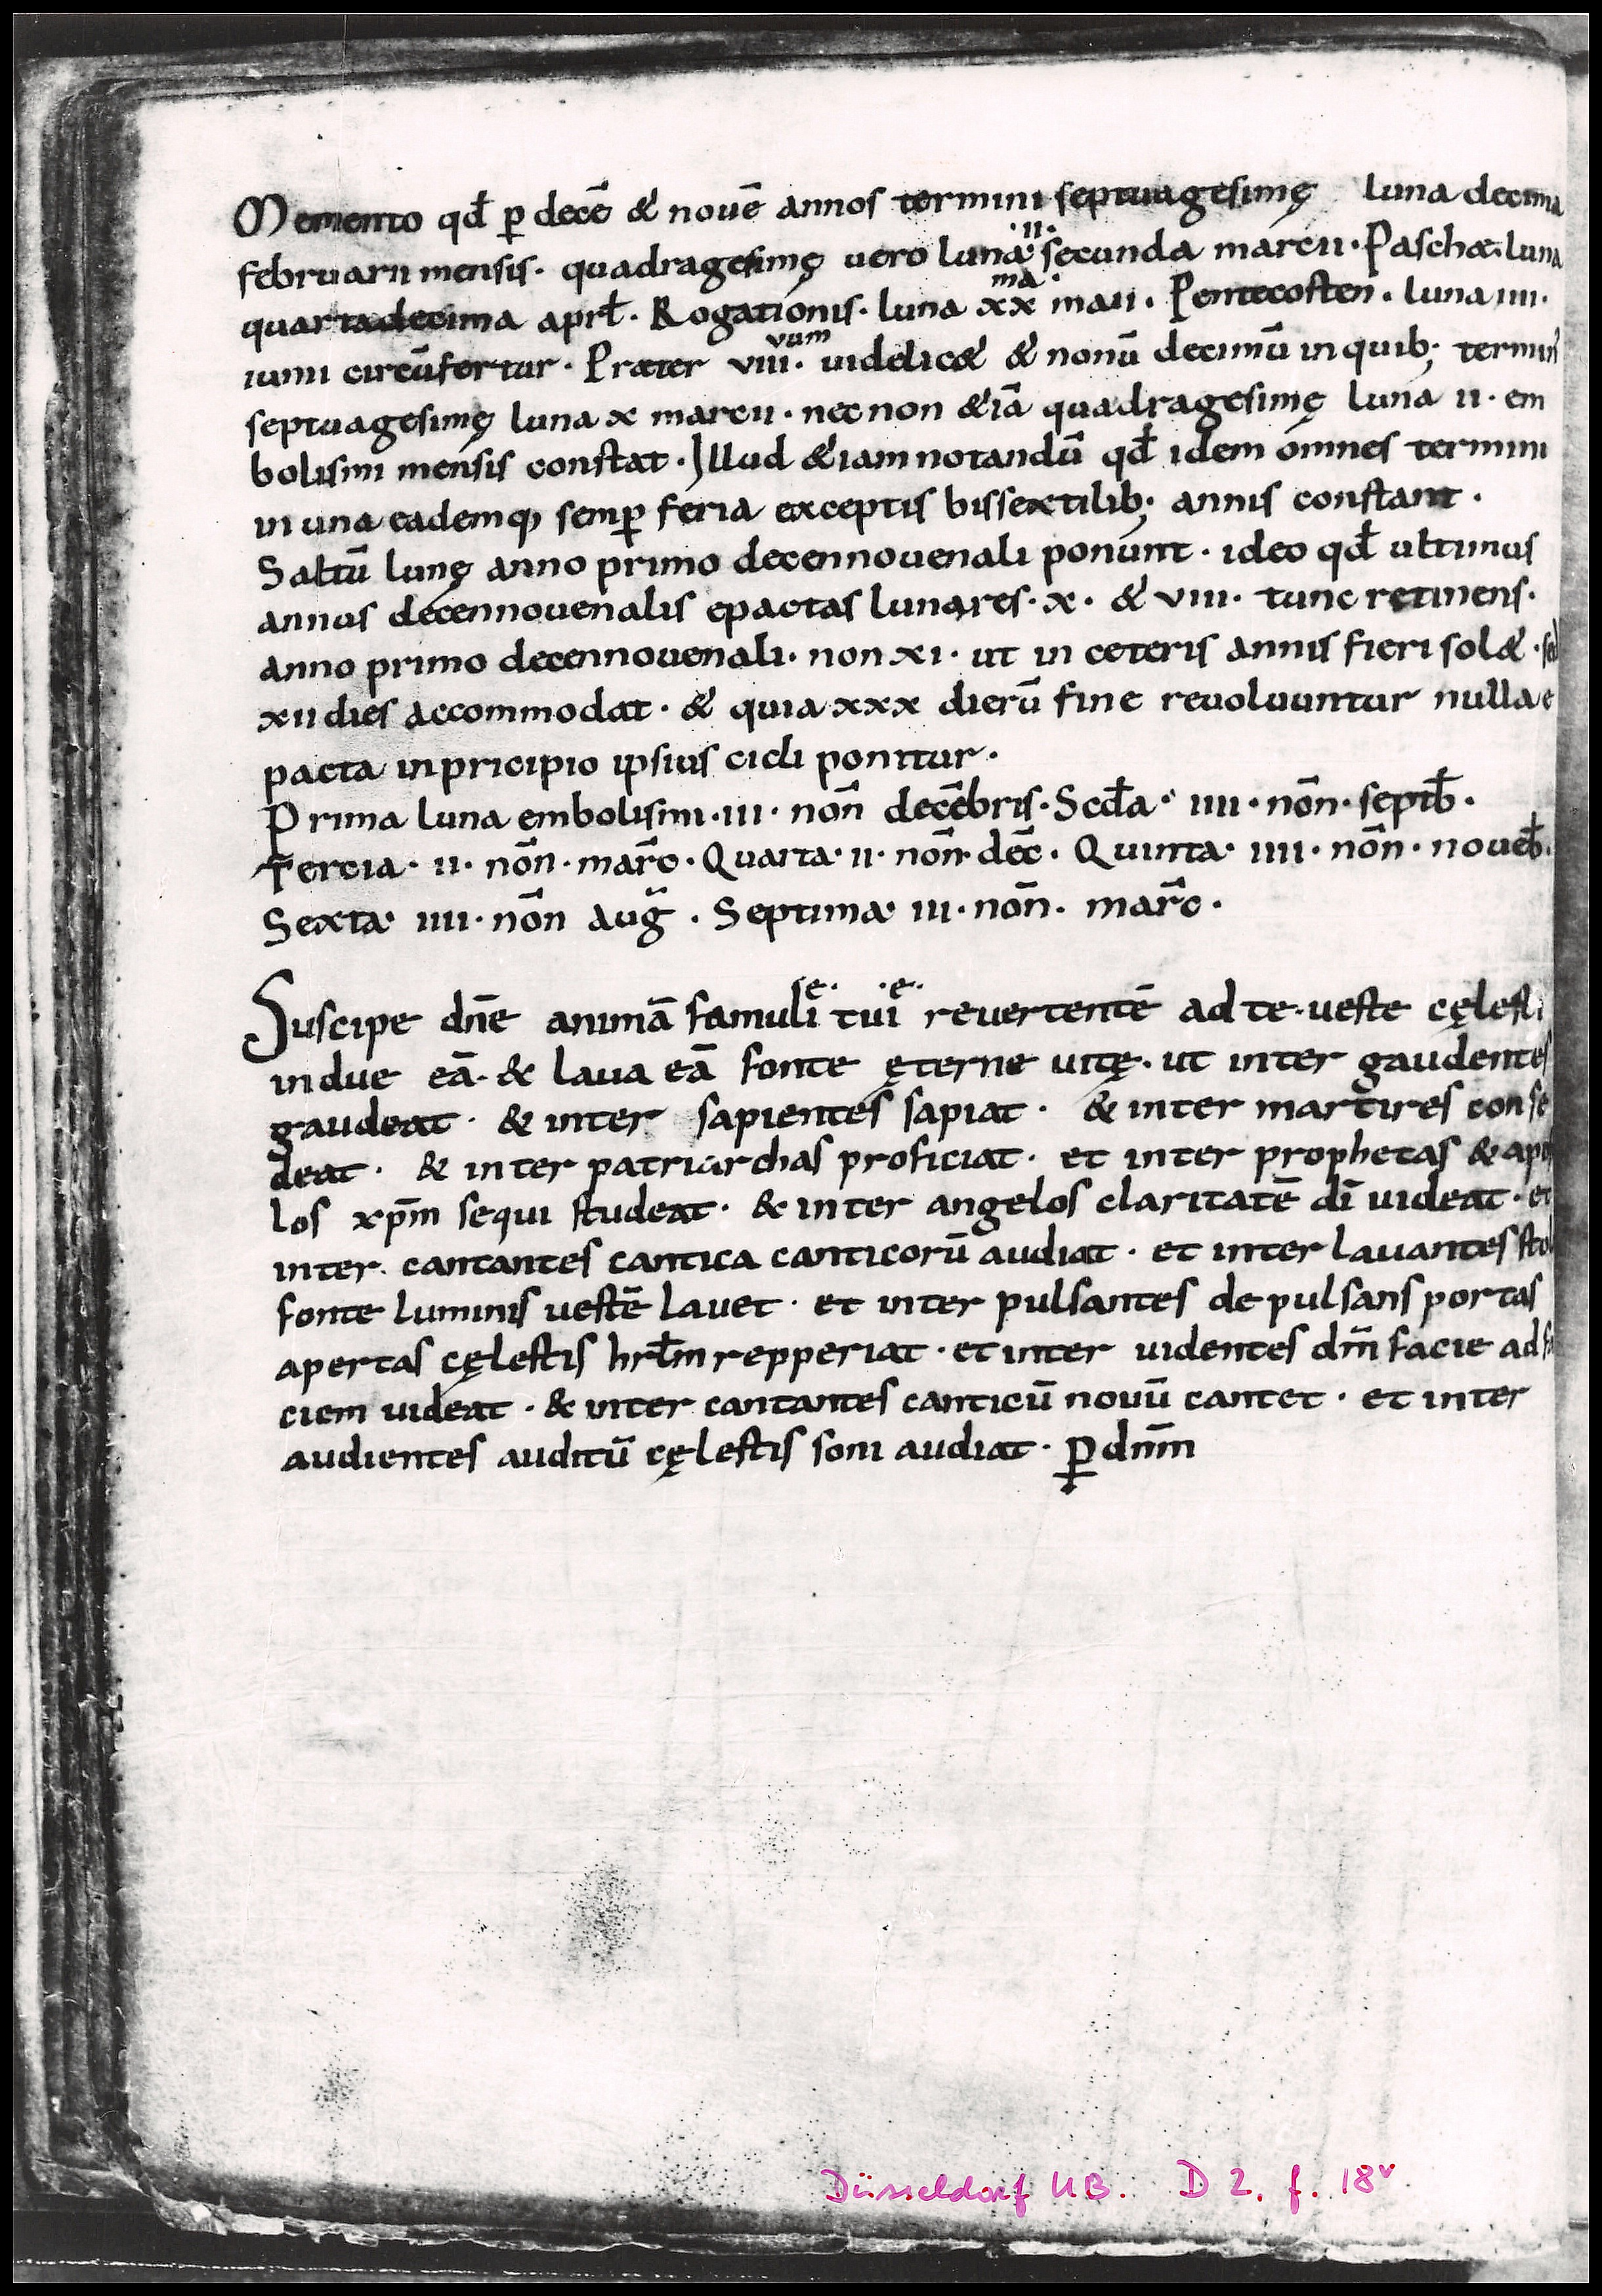 Memento qđ ꝑ decē & nouē annos termini septuagesimę luna decima
februarii mensis · quadragesimę uero luna ·ıı· secunda marcii · Paschæ · luna
quartadecima aprł · Rogationis · luna xxma maii · Pentecosten · luna iiii ·
iunii circūfertur · Præter viiivum · uidelic& & nonū decimū in quib; termin̄
septuagesimę luna x marcii · necnon &iā quadragesimę luna ii · em
bolismi mensis constat · Illud &iam notandū qđ idem omnes termini
in una eademq; semꝑ feria exceptis bissextilib; annis constant ·
Saltū lunę anno primo decennouenali ponunt · ideo qđ ultimus
annus decennouenalis epactas lunares · x · & viii · tunc retinens ·
anno primo decennouenali · non xi · ut in ceteris annis fieri sol& · sed
xii dies accommodat · & quia xxx dierū fine reuoluuntur nulla e
pacta in pricipio ipsius cicli ponitur ·
Prima luna embolismi · iii · noñ decēbris · Scđa · iiii · nōn · septƀ ·
Tercia · ii · nōn · marc̄ · Quarta · ii · nōn dec̄ · Quinta · iiii · nōn · noueƀ ·
Sexta · iiii · nōn aug̃ · Septima · iii · nōn · marc̄ ·
Suscipe dn̄e animā famuli ·e͛· tui ·e· reuertentē ad te · ueste cęlesti
indue eā · & laua eā fonte ęterne uitę · ut inter gaudentes
gaudeat · & inter sapientes sapiat · & inter martires conse
deat · & inter patriarchas proficiat · et inter prophetas & apos
los xp̄m sequi studeat · & inter angelos claritatē dī uideat · et
inter cantantes cantica canticorū audiat · et inter lauantes stol
fonte luminis uestē lauet · et inter pulsantes depulsans portas
apertas cęlestis hrłm repperiat · et inter uidentes dm̄ facie ad fa
ciem uideat · & inter cantantes canticū nouū cantet · et inter
audientes auditū cęlestis soni audiat · ꝑ dnm̄
Düsseldorf UB. D 2. f. 18v